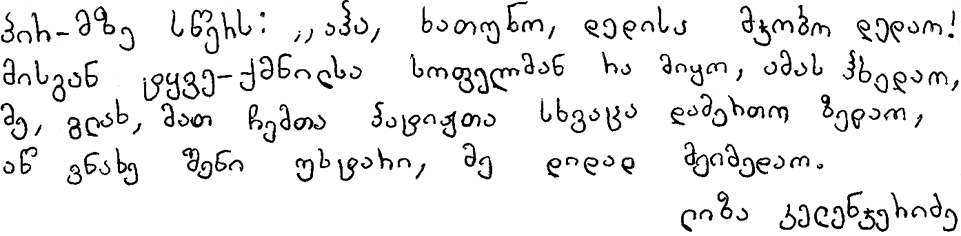 პირ-მზე სწერს: „აჰა, ხათუნო, დედისა მჯობო დედაო!
მისგან ტყვე-ქმნილსა სოფელმან რა მიყო, ამას ჰხედაო,
მე, გლახ, მათ ჩემთა პატიჟთა სხვაცა დამერთო ზედაო,
აწ ვნახე შენი უსტარი, მე დიდად მეიმედაო.
ლიზა კელენჯერიძე